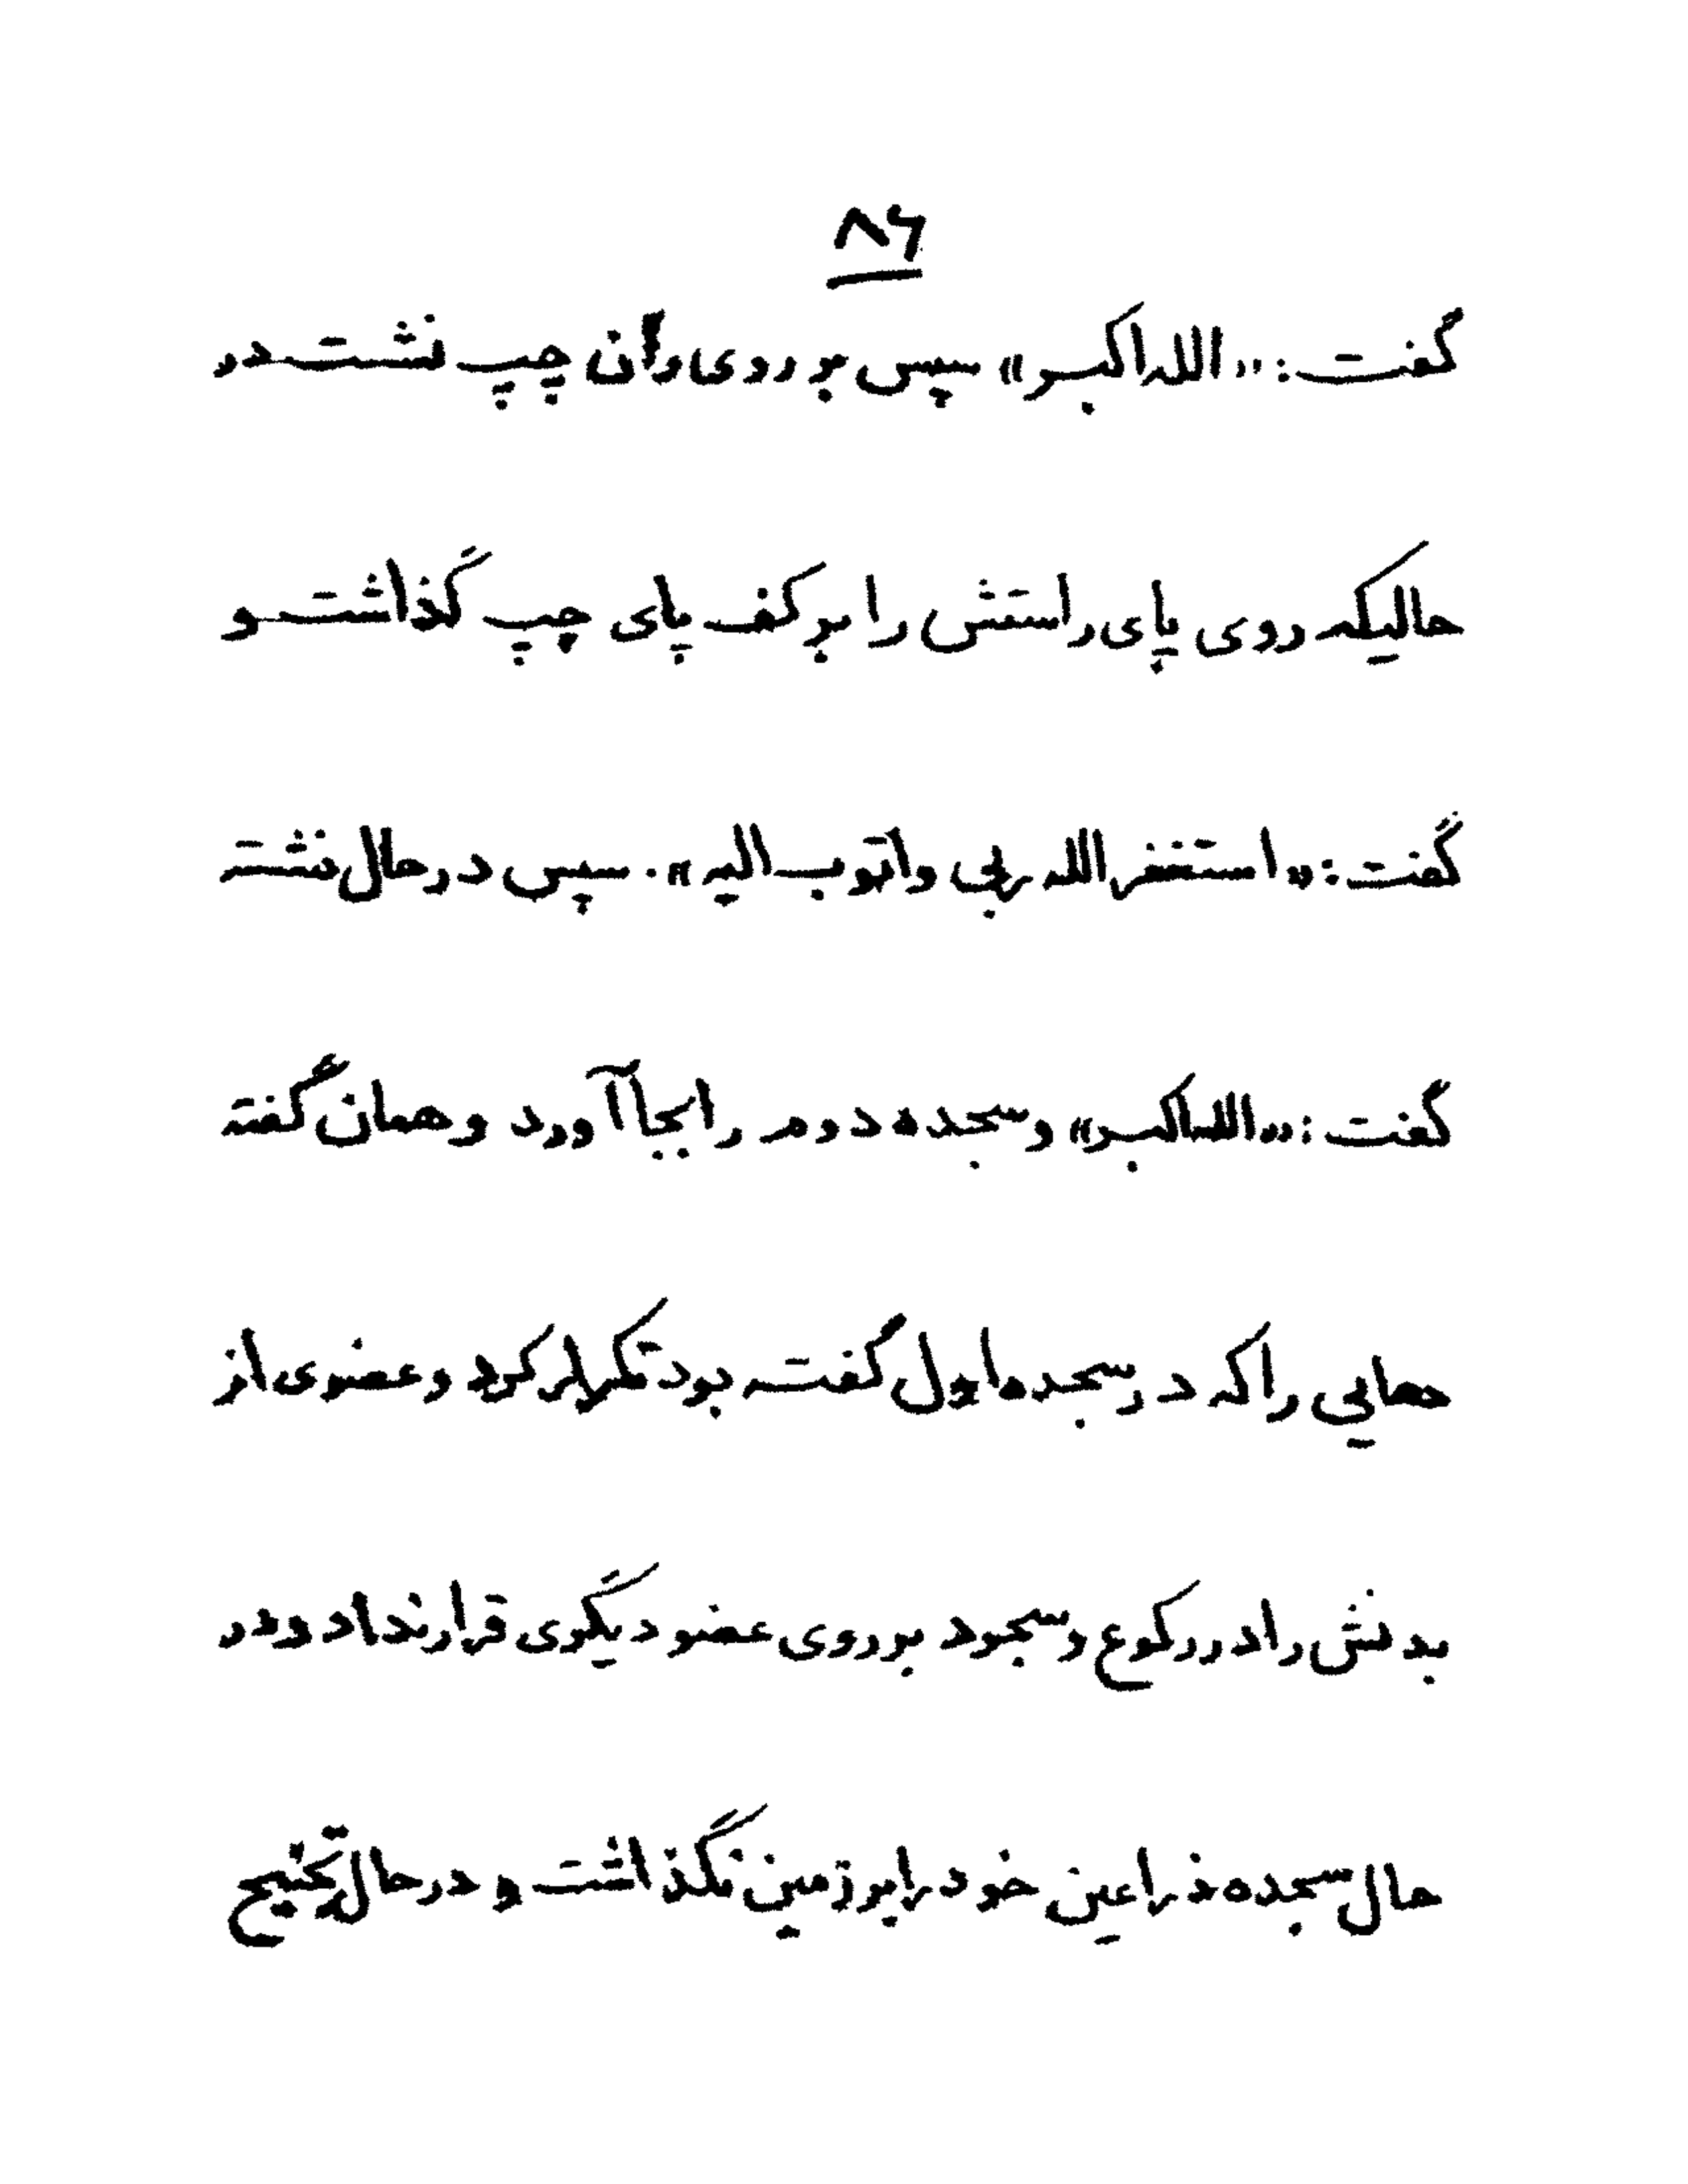 ۸۶
گفت: «الله اکبر» سپس بر روی ران چپ نشست در
حالیکه روی پای راستش را بر کف پای چپ گذاشت و
گفت: «استغفر الله ربی و اتوب الیه». سپس در حال نشسته
گفت: «الله اکبر» و سجده دوم را بجا آورد و همان گفته
هایی را که در سجده اول گفته بود تکرار کرد و عضوی از
بدنش را در رکوع و سجود بر روی عضو دیگری قرار نداد و در
حال سجده ذراعین خود را بر زمین نگذاشت و در حال تجنیح